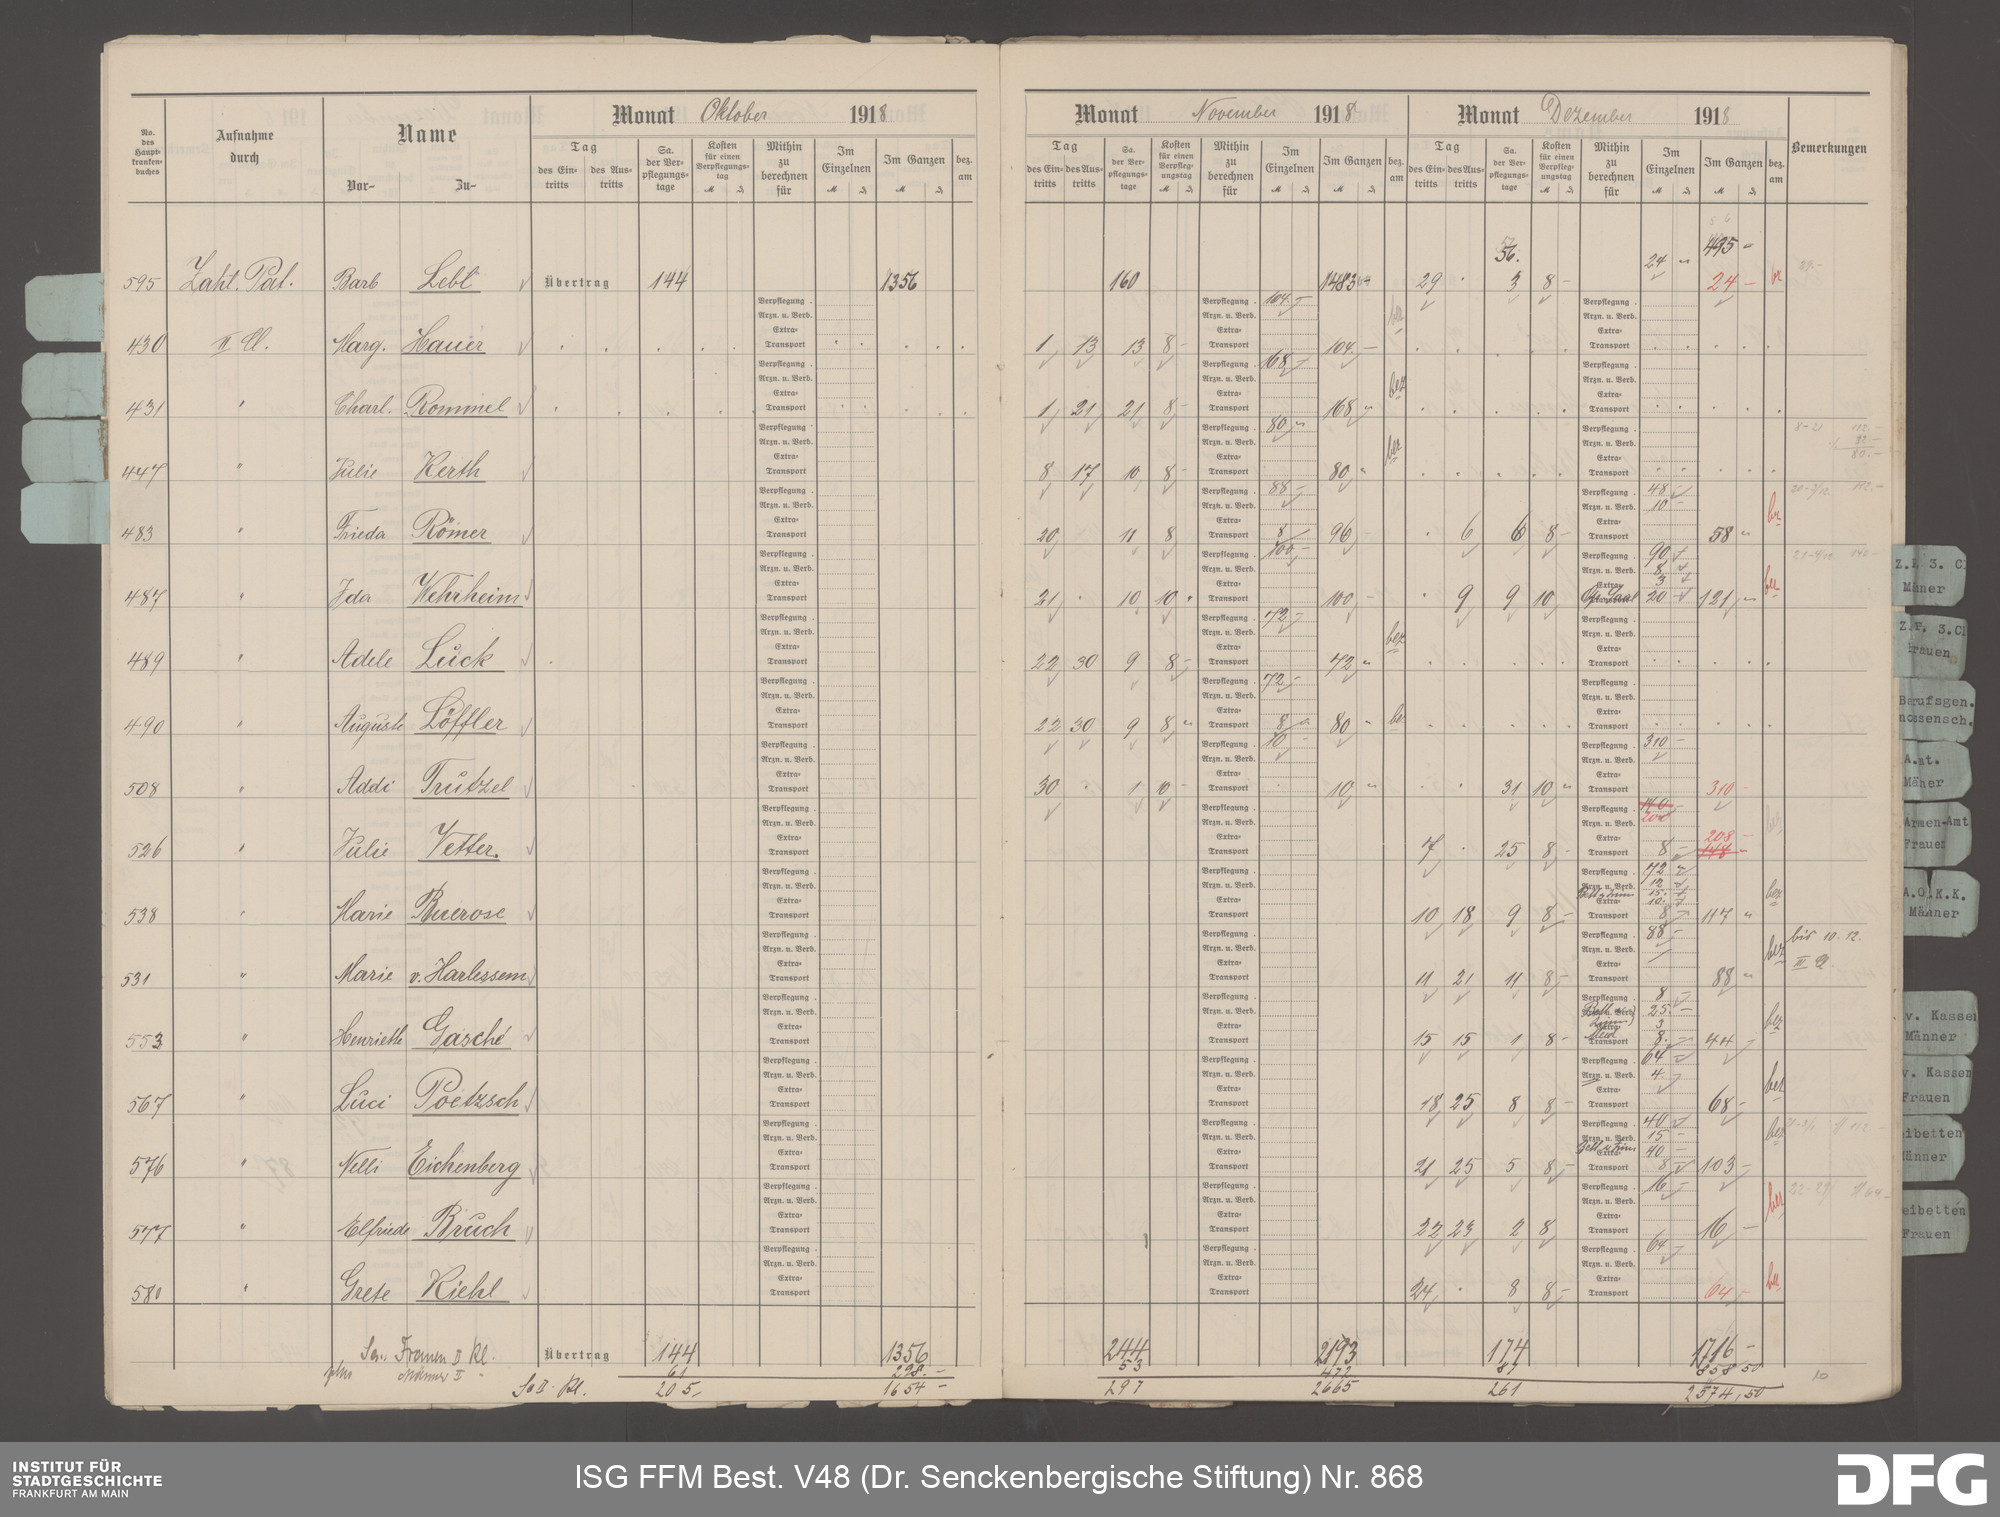 No. des Haupt-kranken-buches
Aufnahme durch
Name
Vor- Zu-
Monat Oktober 1918
Monat November 1918
Monat Dezember 1918
Bemerkungen
Tag
des Ein-tritts des Aus-tritts
Sa. der Ver-pflegungs-tage
Kosten für einen Verpflegungs-tag
Mithin zu berechnen für
Im Einzelnen
Im Ganzen
bez. am
595 Zahl. Pat. Barb Lebl Übertrag 144 1356 160 1483 29 3 8 - 24 495 - 24 - bz
430 II Cl. Marg. Hauer 1 13 13 8 - 104 - 104.- bez
431 " Charl. Rommel 1 21 21 8 - 168 168 bez
447 " Julie Kerth 8 17 10 8 - 80 80 bez 8-21 112.-
483 " Frieda Römer 20 11 8 88 - 8 96 - 6 6 8 - 48 - 10 - 58 bez
487 " Ida Wehrheim 21 10 10 100 - 100 - 9 9 10 90 8 3 20 121 bez
489 " Adele Lück 22 30 9 8 - 72 - 72 bez
490 " Auguste Löffler 22 30 9 8 72 - 8 80 bez
508 " Addi Trützel 30 1 10 - 10 - 10 31 10 310 - 310 -
526 " Julie Vetter. 7 25 8 - 200 8 - 208 - bez
538 " Marie Buerose 10 18 9 8 - 72 12 15 10 8 117 bez
531 " Marie v. Harlessem 11 21 11 8 - 88 - 88 bez bis 10.12. III Cl.
553 " Henriette Gasché 15 15 1 8 - 8 25.- 3 8 44 - bez
567 " Luci Poetzsch 18 25 8 8 - 64 4.- 68 - bez
576 " Nelli Eichenberg 21 25 5 8 - 40 15 - 40 - 8 103 - bez
577 " Elfriede Bruch 22 23 2 8 16 - 16 - bez
580 " Grete Kiehl 24 8 8 - 64 - 64,- bez
Verpflegung
Arzn. u. Verb.
Extra-
Transport
Sa. Frauen II Kl. Übertrag 144 1356 244 2193 174 1716 -
plus Männer II " 61 298.- 53 472 87 858 50
Sa II. Kl. 205,- 1654 - 297 2665 261 2574,50
10
Z.P. 3. Cl
Mäner
Z.P. 3.Cl
Frauen
Berufsgen.
nossensch.
A.mt.
Mäner
Armen-Amt
Frauen
A.O.K.K.
Männer
v. Kassen
Männer
v. Kassen
Frauen
eibetten
Männer
eibetten
Frauen
INSTITUT FÜR
STADTGESCHICHTE
FRANKFURT AM MAIN
ISG FFM Best. V48 (Dr. Senckenbergische Stiftung) Nr. 868
DFG